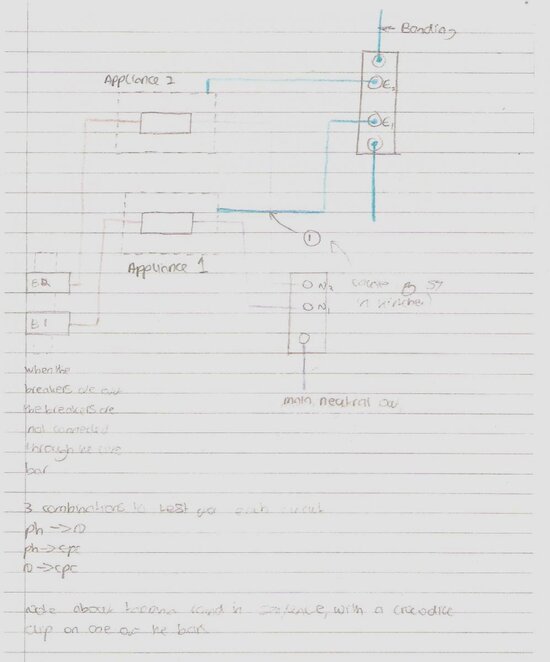 Bonding
Appliance 2
E2
E1
1
Appliance 1
E2
N2
E1
N1
in kitchen)
main neutral
when the
breakers are out
the breakers are
not connected
through the
bar
3 combinations to test for each circuit
ph → n
ph → cpc
n → cpc
Note about in sequence, with a crocodile
clip on one of the bars